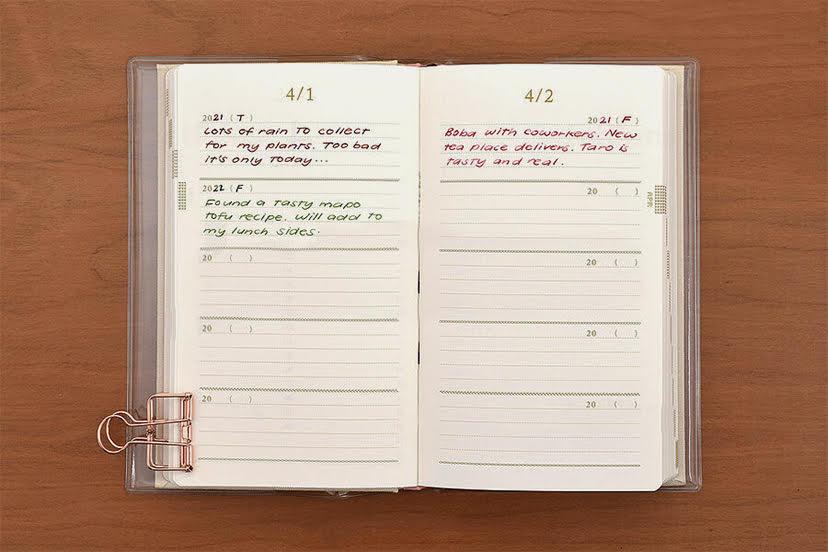 4/1
2021 (T)
Lots of rain to collect
for my plants. Too bad
it's only today...
2022 (F)
Found a tasty mapo
tofu recipe. Will add to
my lunch sides.
20 ( )
20 ( )
20 ( )
4/2
2021 (F)
Boba with coworkers. New
tea place delivers. Taro is
tasty and real.
20 ( )
APR
20 ( )
20 ( )
20 ( )